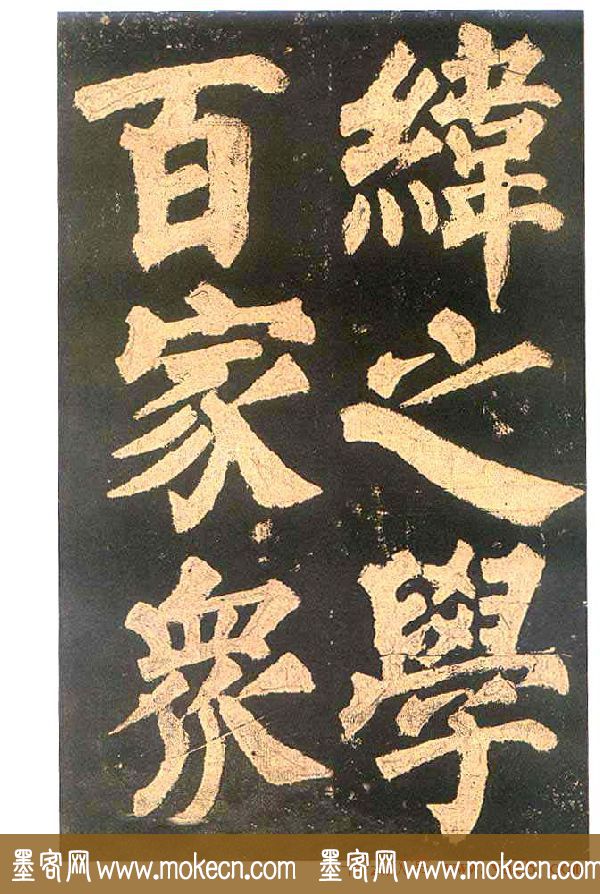 緯之學
百家衆
墨客网 www.mokecn.com 墨客网 www.mokecn.com